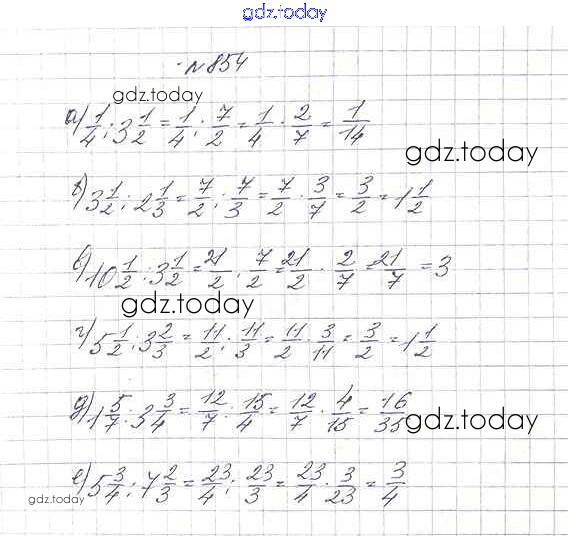 gdz.today
№854
gdz.today
а) 1/4 : 3 1/2 = 1/4 : 7/2 = 1/4 · 2/7 = 1/14
gdz.today
б) 3 1/2 : 2 1/3 = 7/2 : 7/3 = 7/2 · 3/7 = 3/2 = 1 1/2
в) 10 1/2 : 3 1/2 = 21/2 : 7/2 = 21/2 · 2/7 = 21/7 = 3
gdz.today
г) 5 1/2 : 3 2/3 = 11/2 : 11/3 = 11/2 · 3/11 = 3/2 = 1 1/2
д) 1 5/7 : 3 3/4 = 12/7 : 15/4 = 12/7 · 4/15 = 16/35
gdz.today
е) 5 3/4 : 7 2/3 = 23/4 : 23/3 = 23/4 · 3/23 = 3/4
gdz.today